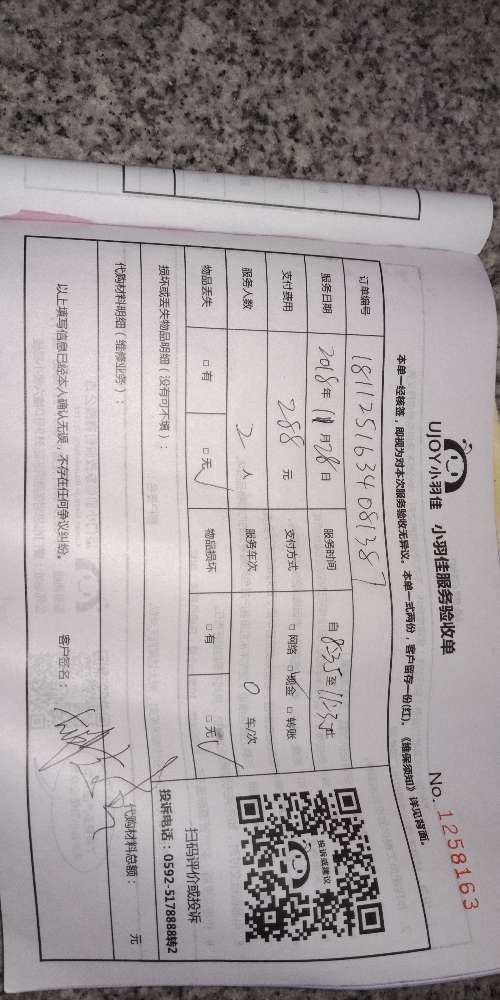 UJOY小羽佳 小羽佳服务验收单
No. 1258163
本单一经核签，即视为对本次服务验收无异议。本单一式两份，客户留存一份(红)。《维保须知》详见背面。
订单编号 1811251634081387
服务日期 2018年 11月28日 服务时间 自 8:35 至 11:35止
支付费用 288 元 支付方式 □网络 □现金 □转账
服务人数 2 人 服务车次 0 车/次
物品丢失 □有 □无 物品损坏 □有 □无
投诉或建议
扫码评价或投诉
投诉电话：0592-5178888转2
损坏或丢失物品明细（没有可不填）：
代购材料明细（维修业务）：
代购材料总额： 元
以上填写信息已经本人确认无误，不存在任何争议纠纷。 客户签名：